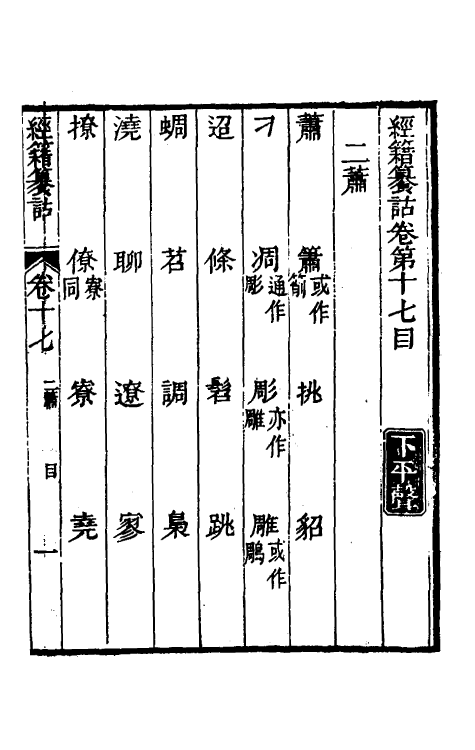 經籍籑詁卷第十七目 下平聲
二蕭
蕭 簫或作箾 挑 貂
刁 凋通作彫 彫亦作雕 雕或作鵰
迢 條 髫 跳
蜩 苕 調 梟
澆 聊 遼 寥
撩 僚寮同 寮 堯
經籍籑詁 卷十七 二蕭 目 一